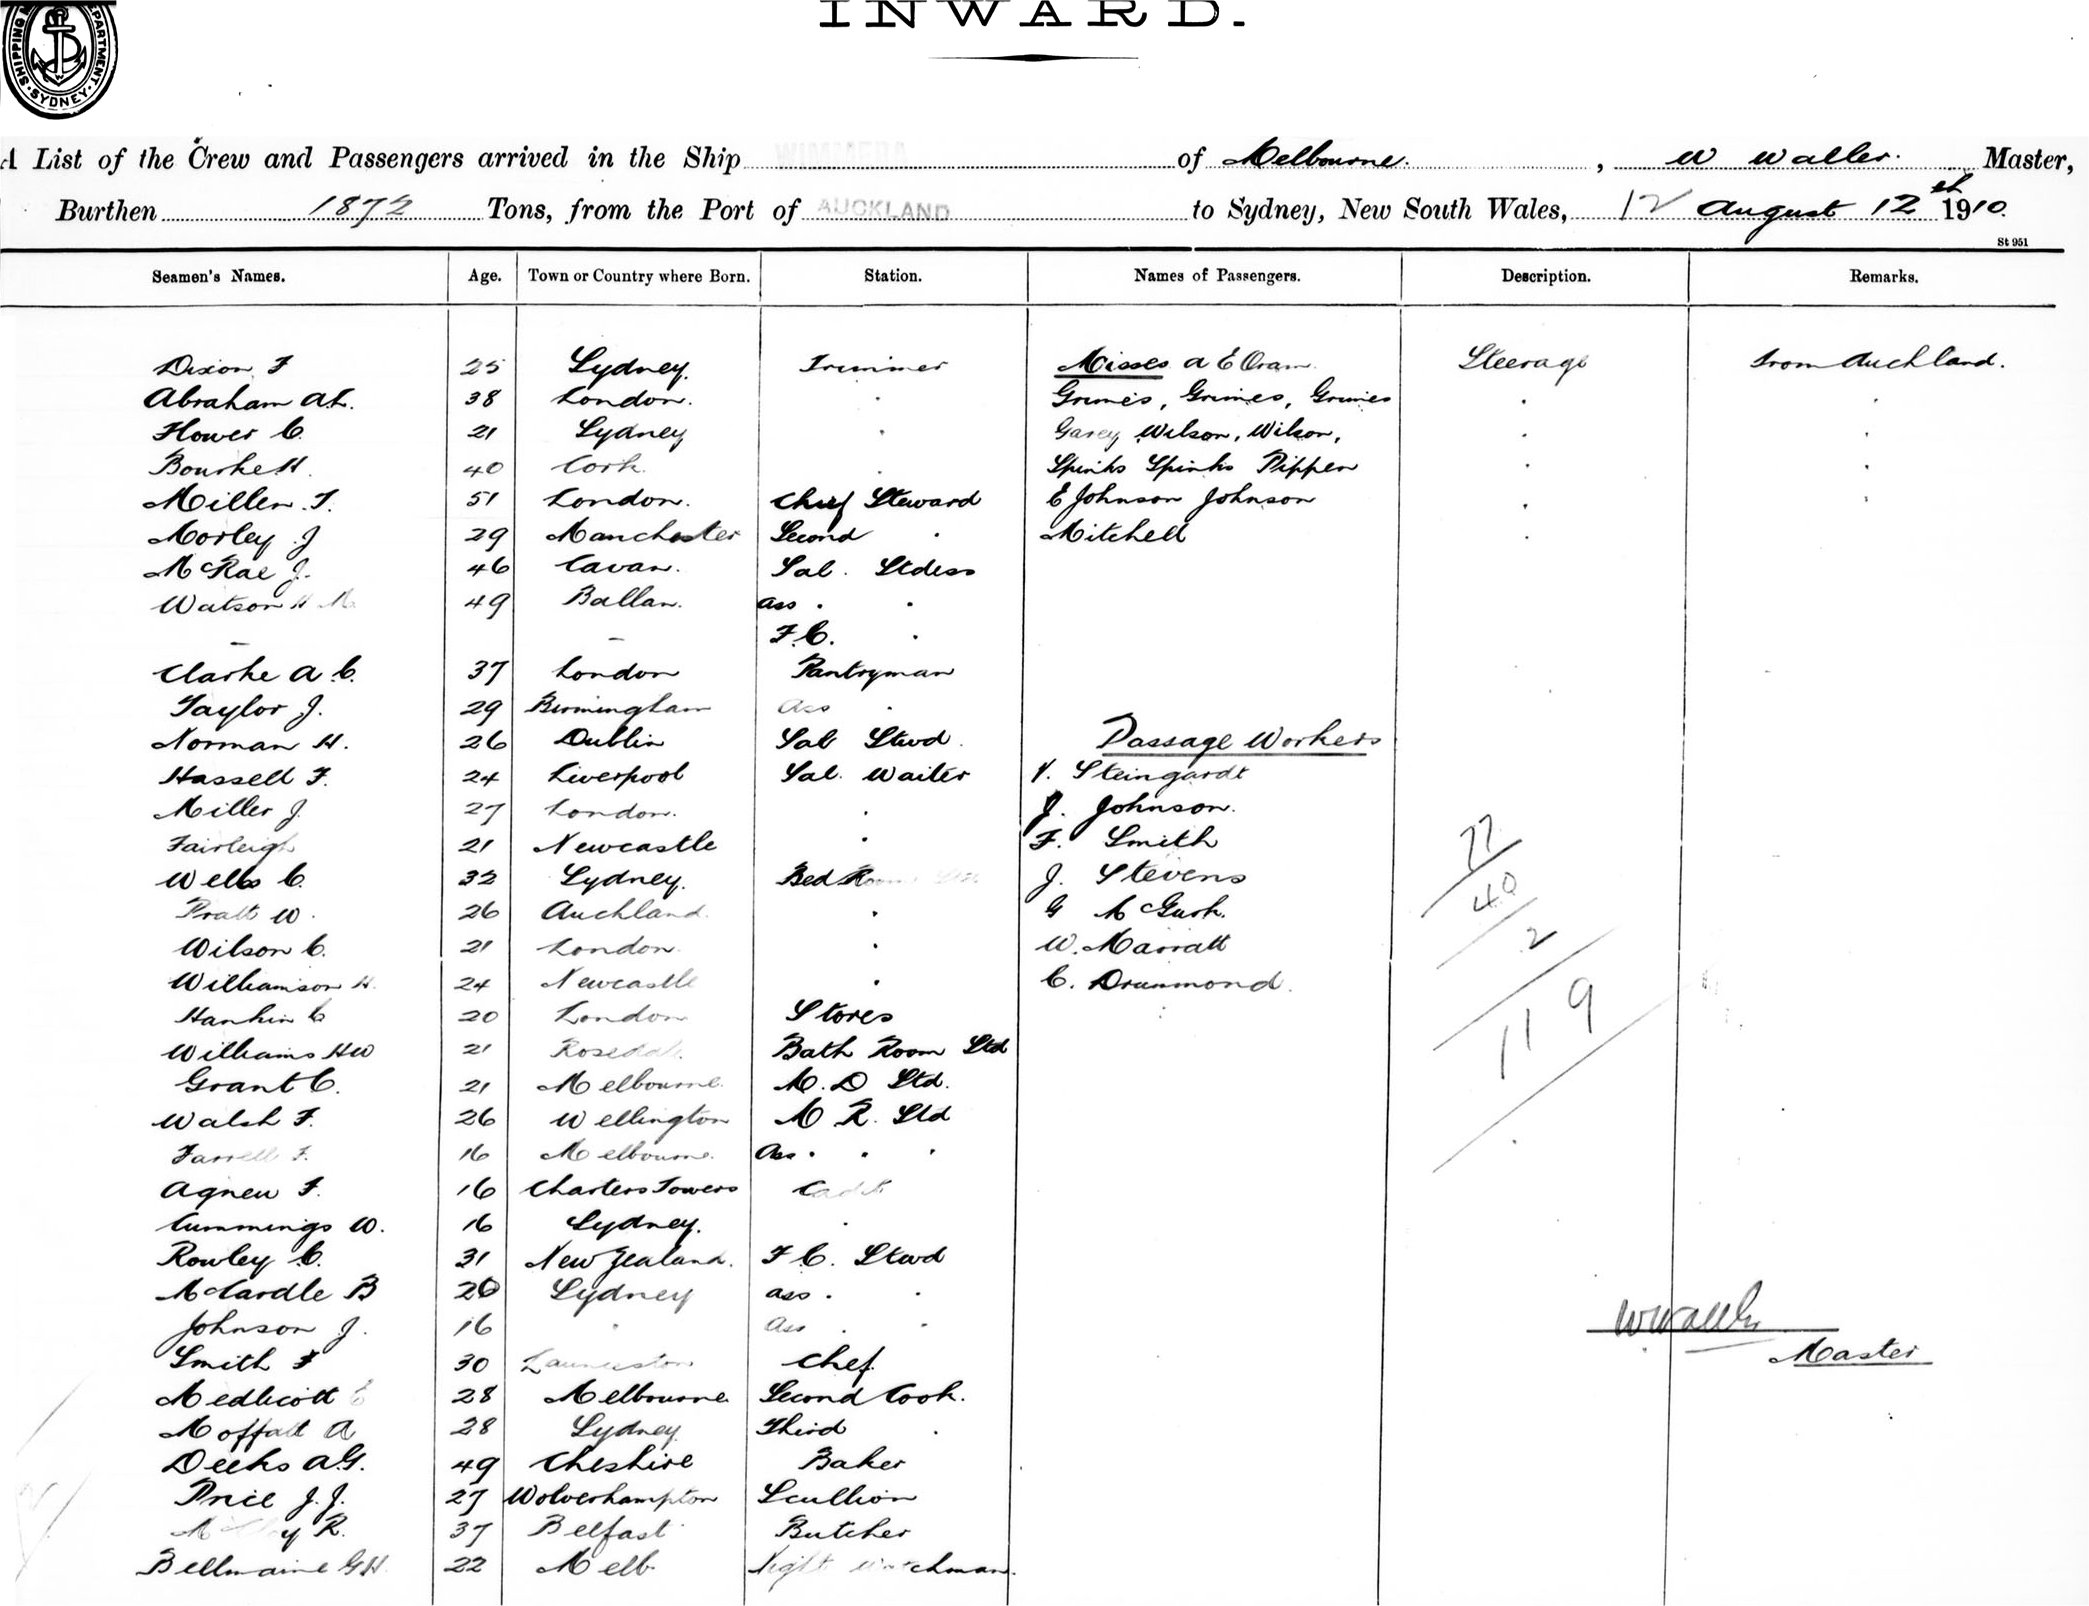 INWARD.
SHIPPING DEPARTMENT. SYDNEY.
A List of the Crew and Passengers arrived in the Ship WIMMERA of Melbourne. , W Waller. Master,
Burthen 1872 Tons, from the Port of AUCKLAND to Sydney, New South Wales, 12 August 12th 1910.
St 951
Seamen's Names. Age. Town or Country where Born. Station. Names of Passengers. Description. Remarks.
Dixon F 25 Sydney. Trimmer Misses A E Oram. Steerage From Auckland.
Abraham A.L. 38 London. " Grimes, Grimes, Grimes " "
Flower C. 21 Sydney " Garey Wilson, Wilson, " "
Bourke H. 40 Cork. " Spinks Spinks Pippen " "
Millen. F. 51 London. Chief Steward E Johnson Johnson " "
Morley J 29 Manchester Second " Mitchell "
McRae J. 46 Cavan. Sal. Stdess
Watson H M 49 Ballan. Ass " "
— — F.C. "
Clarke A C. 37 London Pantryman
Taylor J. 29 Birmingham Ass "
Norman H. 26 Dublin Sal Stwd. Passage Workers
Hassell F. 24 Liverpool Sal. Waiter V. Steingardt
Miller J. 27 London. " J. Johnson.
Fairleigh 21 Newcastle " F. Smith
Wells C. 32 Sydney. Bed Room Std J. Stevens
Pratt W. 26 Auckland. " G McGurk.
Wilson C. 21 London. " W. Marratt
Williamson H. 24 Newcastle " C. Drummond.
Hankin C 20 London Stores
Williams HW 21 Rosedale Bath Room Std
Grant C. 21 Melbourne. M. D Std.
Walsh F. 26 Wellington M R. Std
Farrell F. 16 Melbourne. Ass " " "
Agnew F. 16 Charters Towers Cadet
Cummings W. 16 Sydney. "
Rowley C. 31 New Zealand. F C. Stwd
McCardle B 20 Sydney ass " "
Johnson J. 16 " Ass " "
Smith F 30 Launceston Chef
Medlicott E 28 Melbourne Second Cook.
Moffatt A 28 Sydney Third "
Deeks A.G. 49 Cheshire Baker
Price J.J. 27 Wolverhampton Scullion
R. 37 Belfast Butcher
Bellmaine GH 22 Melb Night Watchman.
77
40
2
119
W Waller
Master